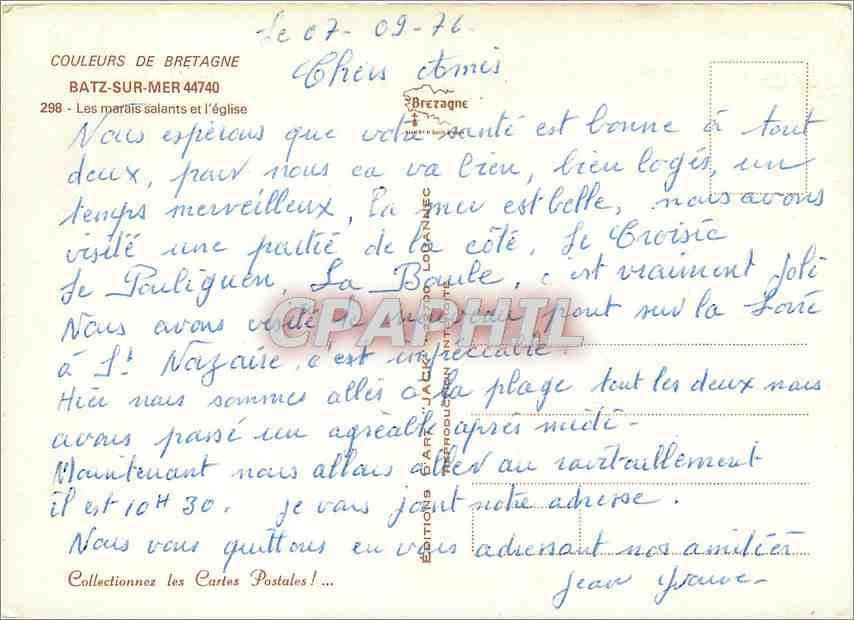 Le 07 - 09 - 76 -
COULEURS DE BRETAGNE
Chers Amis
BATZ-SUR-MER 44740
298 - Les marais salants et l'église
Bretagne
Nous espérons que votre santé est bonne à tout
deux, pour nous ca va bien, bien logés, un
temps merveilleux, la mer est belle, nous avons
visité une partie de la côté, Le Croisic
Le Pouliguen, La Baule, c'est vraiment Joli
Nous avons visité le nouveau pont sur la Loire
à St Nazaire, c'est impréciable.
Hier nous sommes allés à la plage tout les deux nous
avons passé un agréable après midi -
Maintenant nous allons aller au ravitaillement
il est 10H 30. je vous joint notre adresse.
Nous vous quittons en vous adressant nos amitiés
Collectionnez les Cartes Postales ! ...
Jean Yvonne -
EDITIONS D'ART JACK
LOUANNEC
REPRODUCTION INTERDITE
CPAPHIL